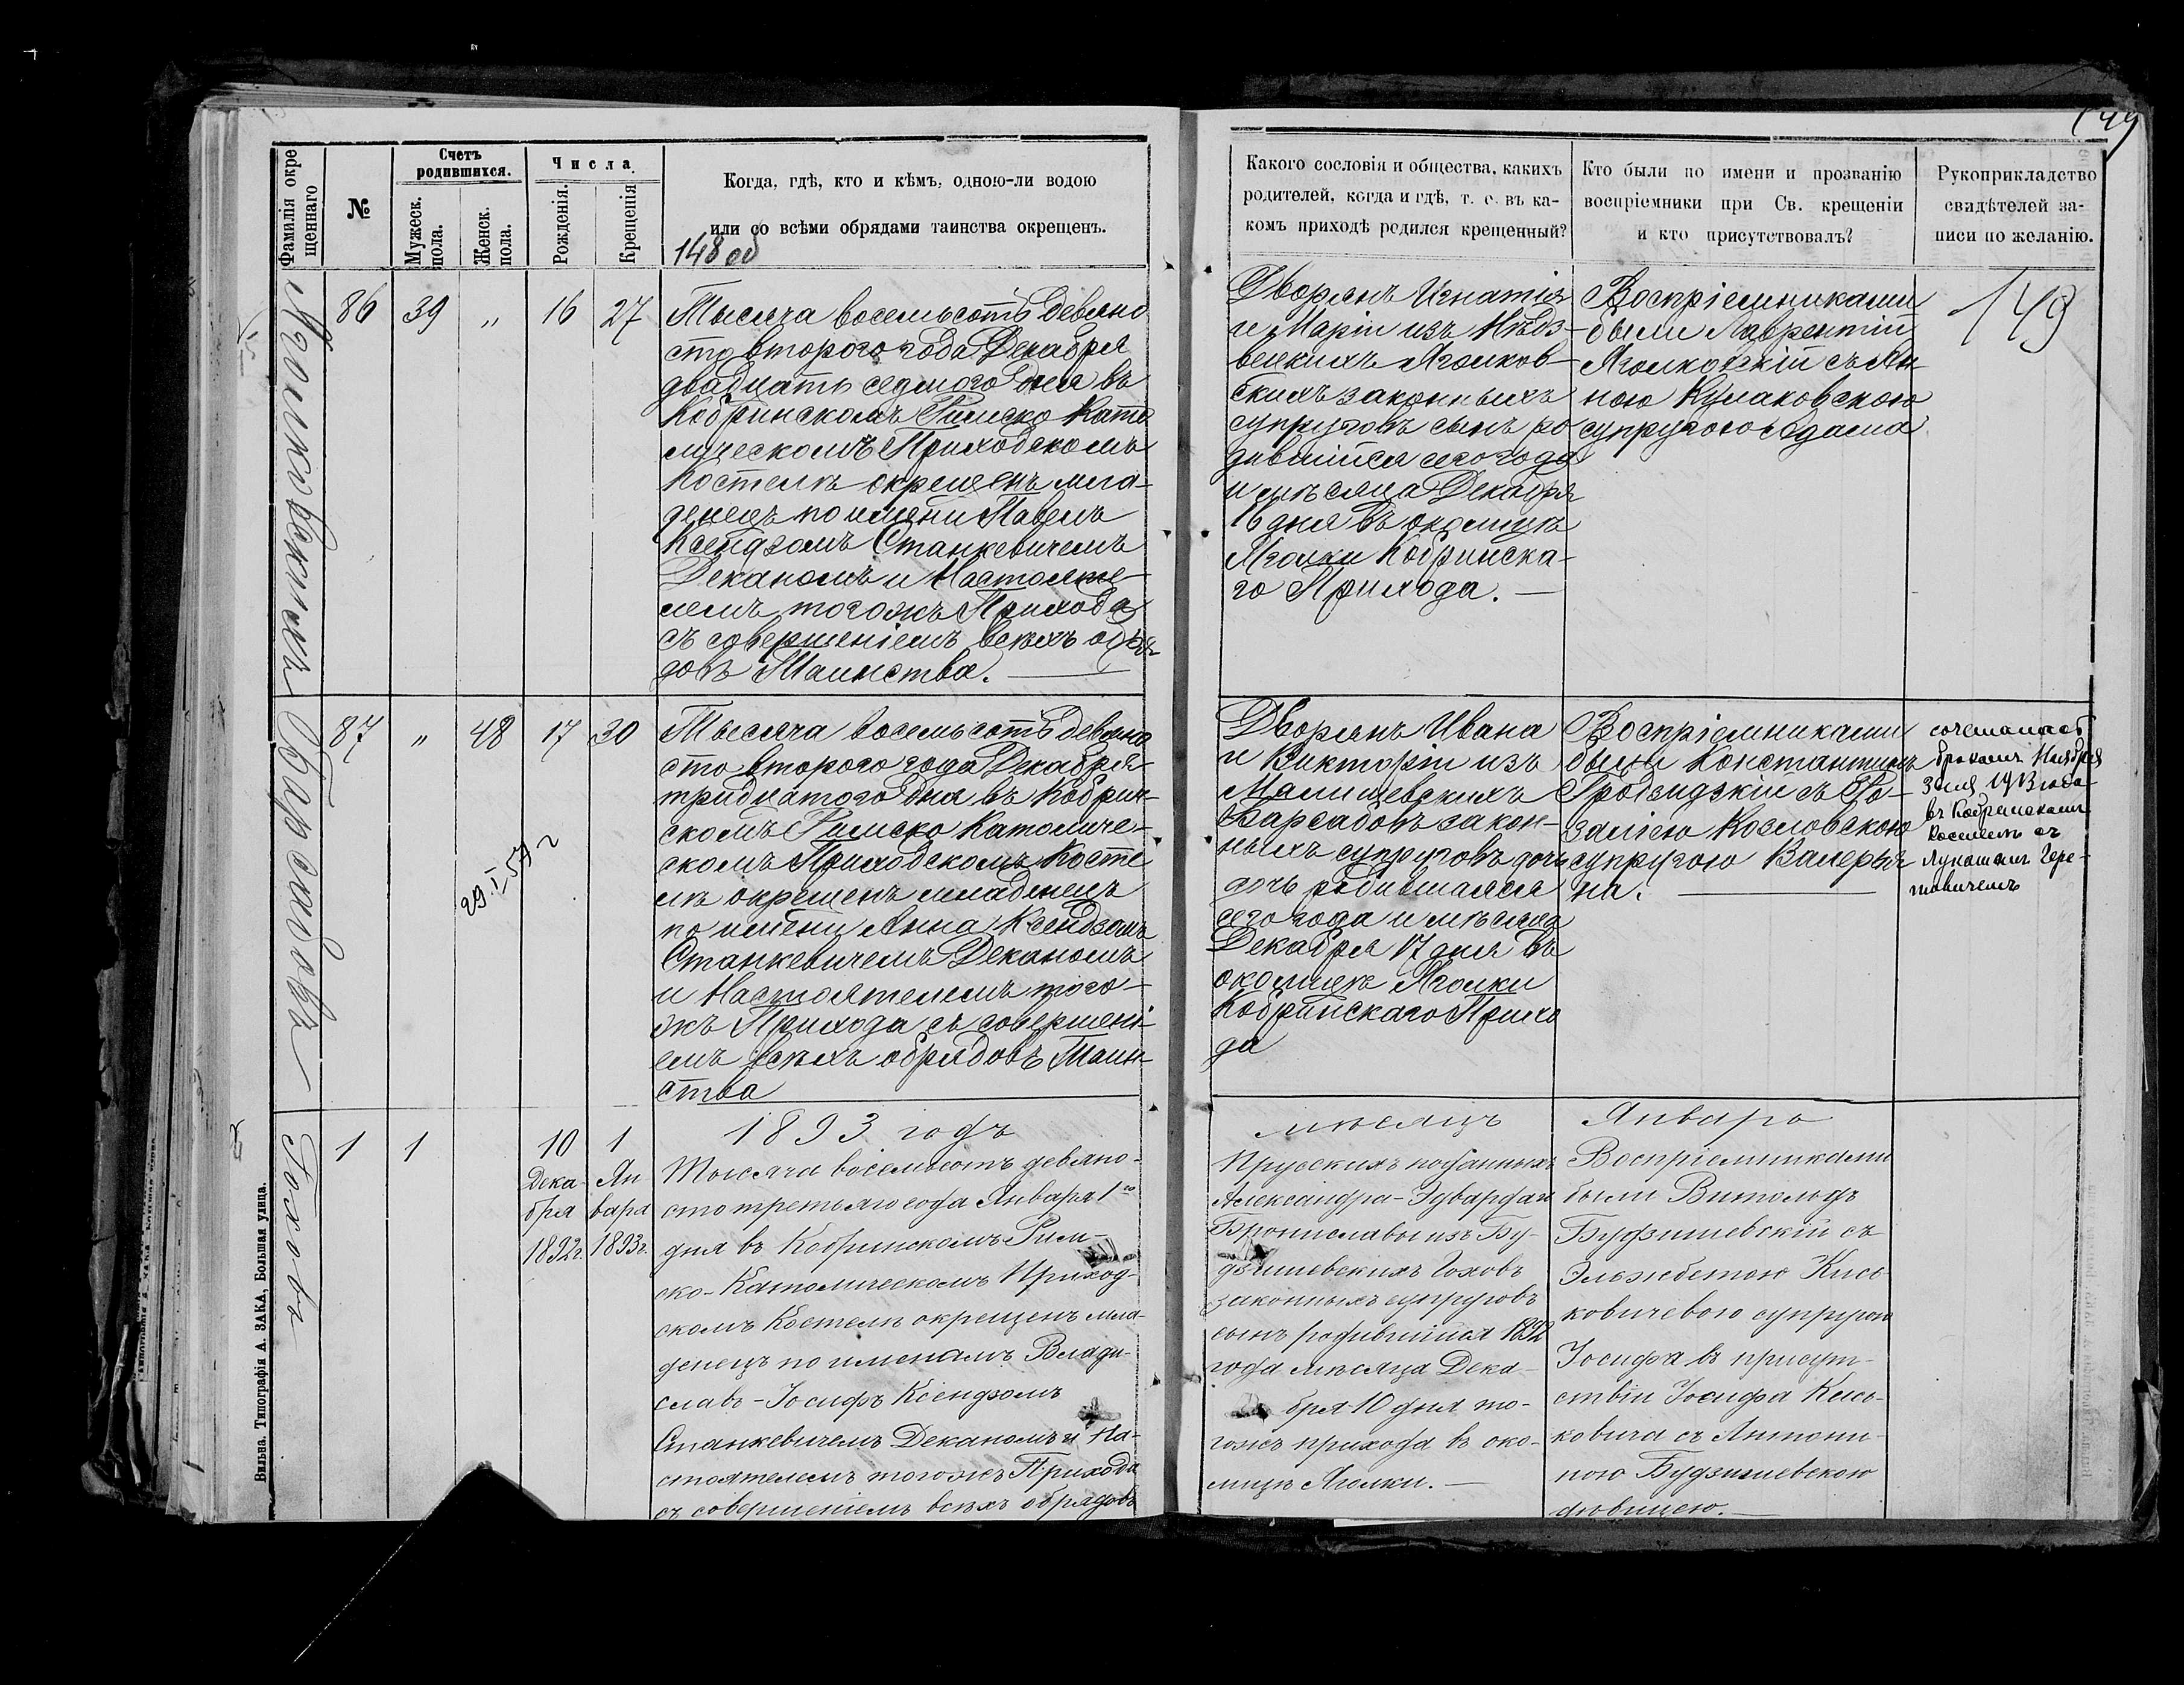 149
Фамилія окре
щеннаго
№
Счетъ
родившихся.
Мужеск.
пола.
Женск.
пола.
Числа.
Рожденія.
Крещенія
Когда, гдѣ, кто и кѣмъ, одною-ли водою
или со всѣми обрядами таинства окрещенъ.
148 об
Какого сословія и общества, какихъ
родителей, когда и гдѣ, т. е. въ ка-
комъ приходѣ родился крещенный?
Кто были по имени и прозванію
воспріемники при Св. крещеніи
и кто присутствовалъ?
Рукоприкладство
свидѣтелей за-
писи по желанію.
Ягомковскихъ
86
39
„
16
27
Тысяча восемьсотъ девяно
сто второго года Декабря
двадцать седмого дня въ
Кобринскомъ Римско Като
лическомъ Приходскомъ
Костелѣ окрещенъ мла-
денецъ по имени Павелъ
Ксендзомъ Станкевичемъ
Деканомъ и Настояте-
лемъ тогожъ Прихода
съ совершеніемъ всѣхъ обря-
довъ Таинства.
Дворянъ Игнатія
и Маріи изъ
скихъ законныхъ
супруговъ сынъ ро
дившійся сего года
и мѣсяца Декабря
16 дня въ околицѣ
Кобринска-
го Прихода.
Воспріемниками
были Лаврентій
съ Ан-
ною Кулаковскою
супругою Адама
149
Барсадовъ
87
„
48
17
30
29.I.57 г
Тысяча восемьсотъ девяно
сто второго года Декабря
тридцатого дня въ Кобрин-
скомъ Римско Католиче-
скомъ Приходскомъ Косте
лѣ окрещенъ младенецъ
по имени Анна Ксендзомъ
Станкевичемъ Деканомъ
и Настоятелемъ того-
жъ Прихода съ совершені-
емъ всѣхъ обрядовъ Таин-
ства
Дворянъ Ивана
и Викторіи изъ
Малишевскихъ
Барсадовъ закон-
ныхъ супруговъ дочь
дочь родившаяся
сего года и мѣсяца
Декабря 17 дня въ
околицѣ
Кобринскаго Прихо
да
Воспріемниками
были Константинъ
Гродзидзкій съ Ро-
заліею Козловскою
супругою Валерья
на.
сочеталась
бракомъ Ноября
3 дня 1913 года
въ Кобринскомъ
Костелѣ съ
Лукашемъ Чере-
товичемъ
1893 годъ
мѣсяцъ
Январь
Гоховъ
1
1
10
Дека
бря
1892г.
1
Ян
варя
1893г.
Тысяча восемьсотъ девяно-
сто третьяго года Января 1го
дня въ Кобринскомъ Рим-
ско-Католическомъ Приход-
скомъ Костелѣ окрещенъ мла-
денецъ по именамъ Влади-
славъ-Іосифъ Ксендзомъ
Станкевичемъ Деканомъ и На-
стоятелемъ тогожъ Прихода
съ совершеніемъ всѣхъ обрядовъ
Прусскихъ подданныхъ
Александра-Эдварда и
Брониславы изъ Бу-
дзишевскихъ Гоховъ
законныхъ супруговъ
сынъ родившійся 1892
года мѣсяца Дека-
бря 10 дня то-
гожъ прихода въ око-
лицѣ
Воспріемниками
были Витольдъ
Будзишевскій съ
Эльжбетою Кись-
ковичевою супругою
Іосифа въ присут-
ствіи Іосифа Кись-
ковича съ Антони-
ною Будзишевскою
дѣвицею.
Вильна. Типографія А. ЗАКА, Большая улица.